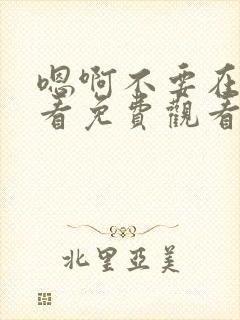 嗯啊不要在
看免費觀看
北里亞美